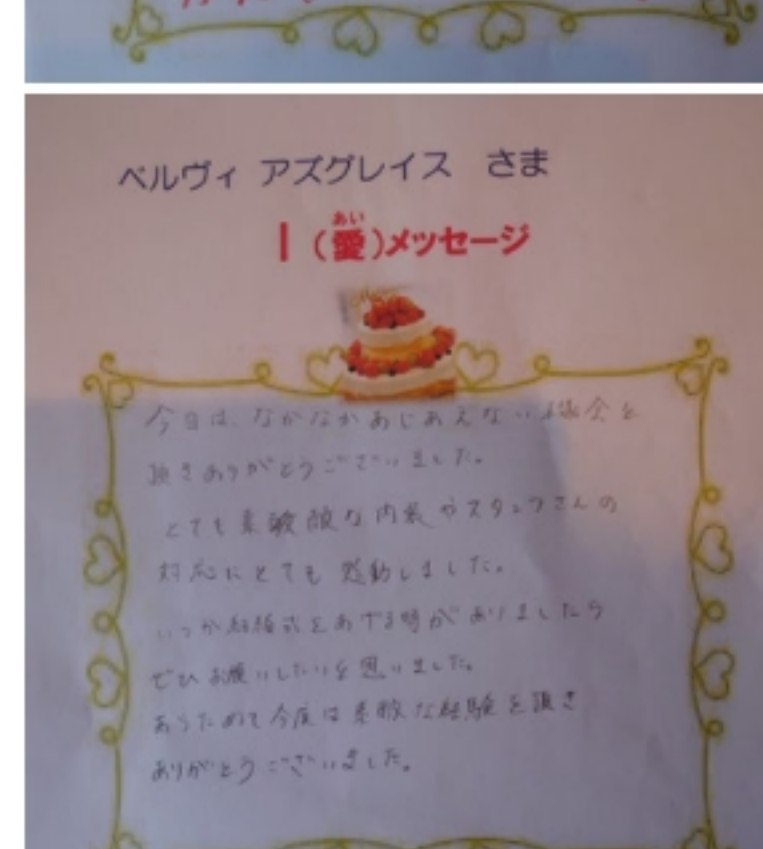 ベルヴィ アズグレイス さま
あい
I (愛)メッセージ
今日は、なかなかあじあえない機会を
頂きありがとうございました。
とても素敵な内装やスタッフさんの
対応にとても感動しました。
いつか結婚式をあげる時がありましたら
ぜひお願いしたいと思いました。
あらためて今度は素敵な経験を頂き
ありがとうございました。